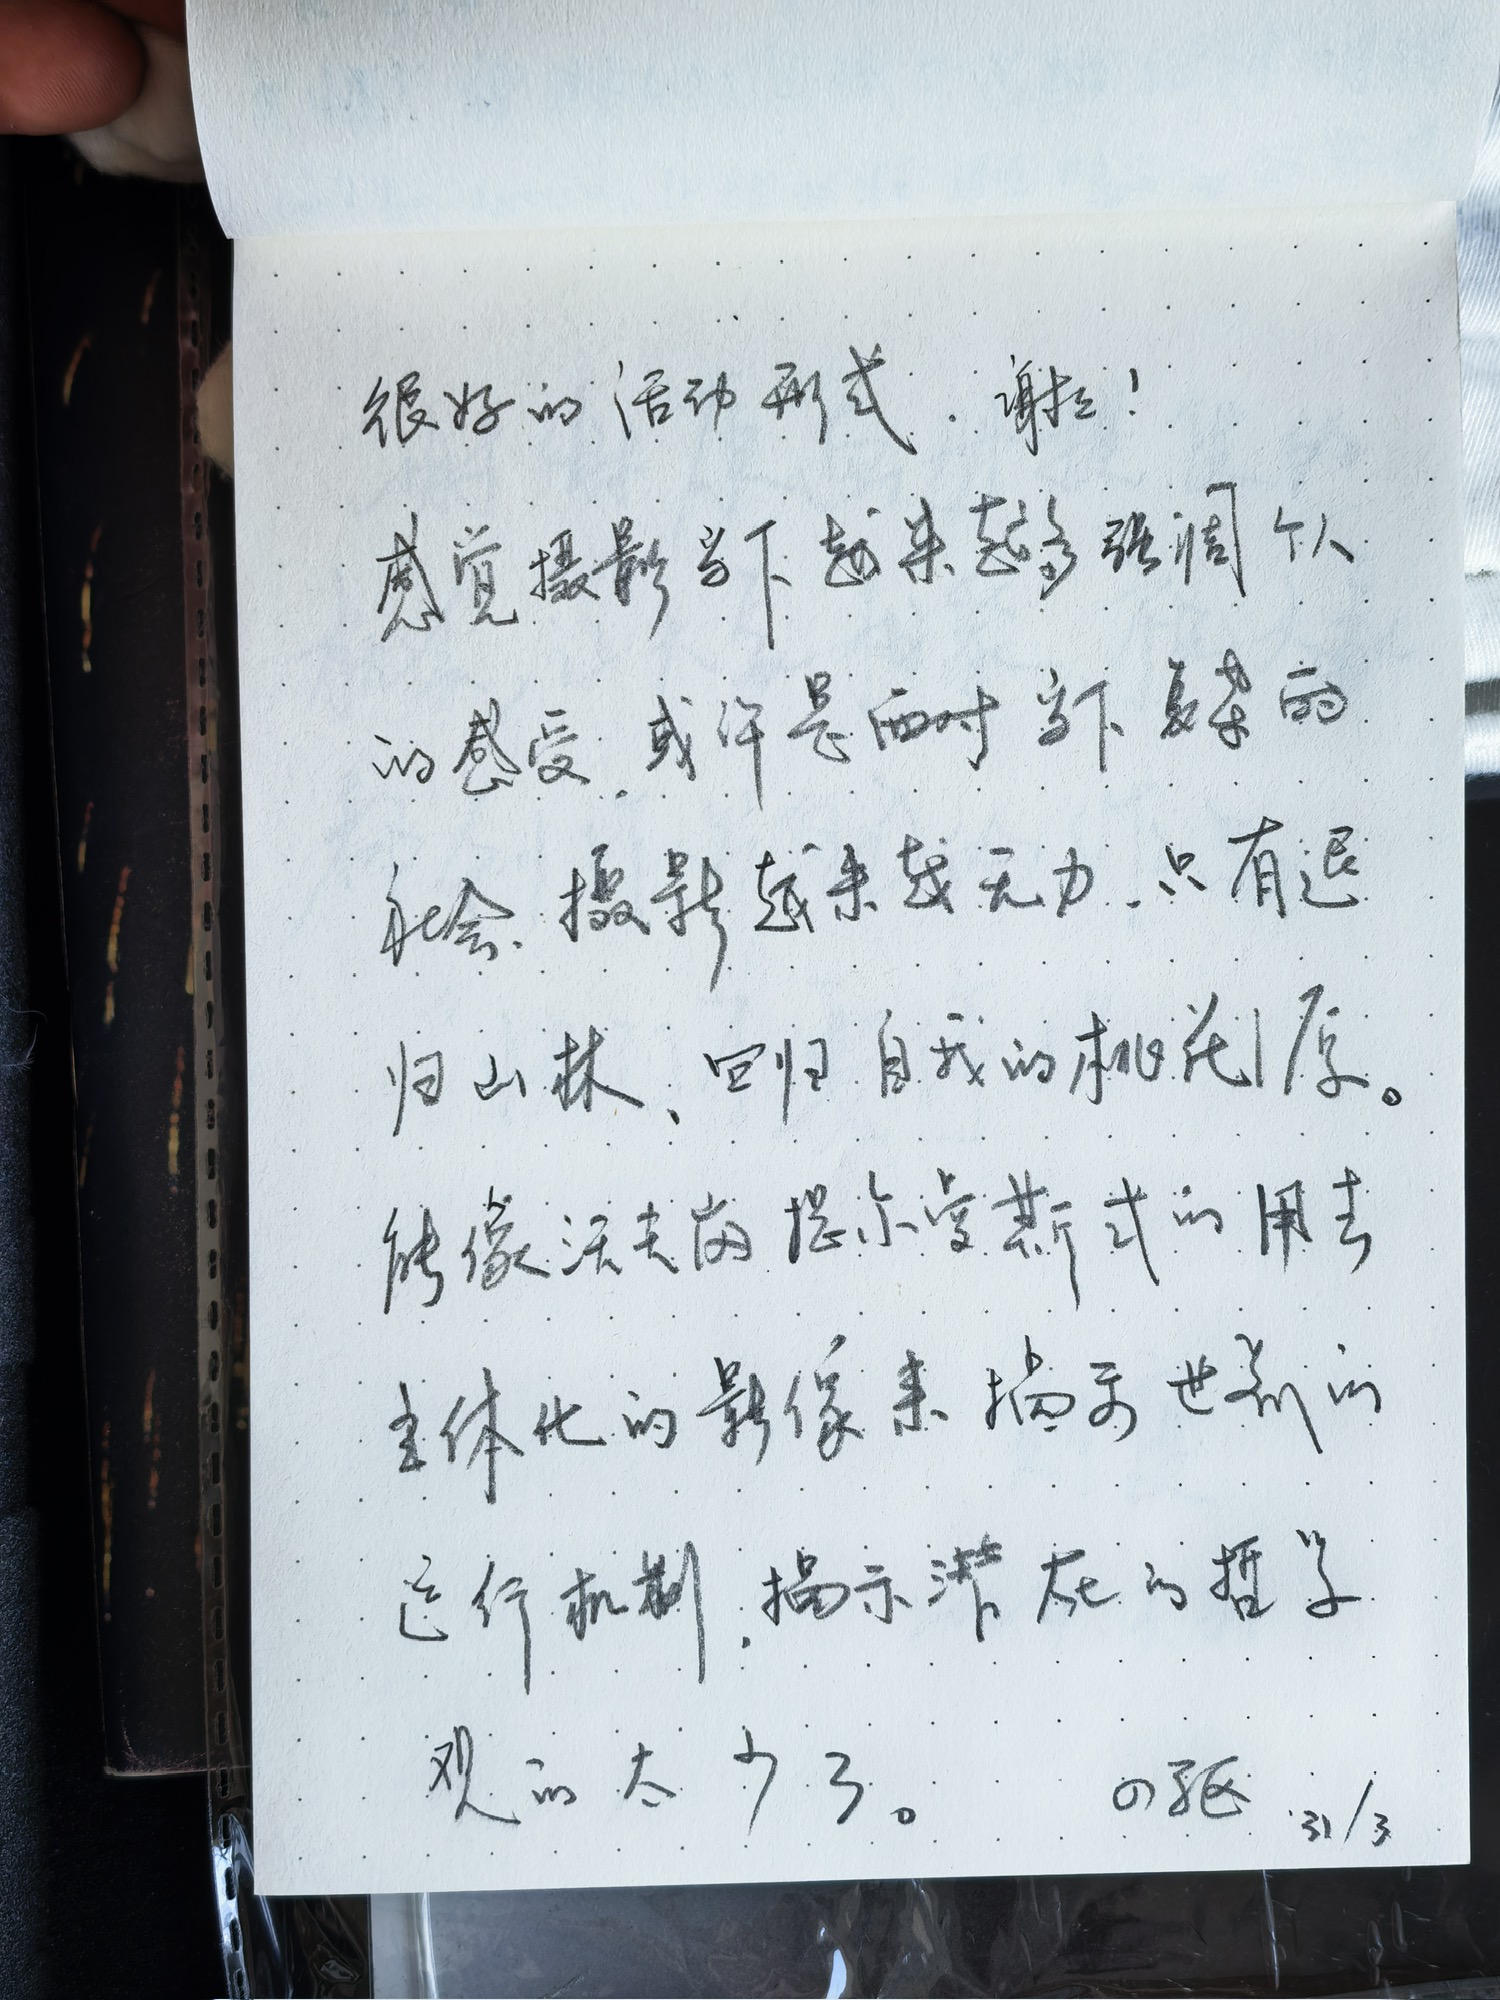 很好的活动形式.谢谢!
感觉摄影当下越来越多强调个人
的感受.或许是面对当下复杂的
社会.摄影越来越无力.只有退
归山林、回归自我的桃花源。
能像沃夫岗提尔曼斯式的用去
主体化的影像来揭示世界的
运行机制.揭示潜在的哲学
观的太少了。
31/3